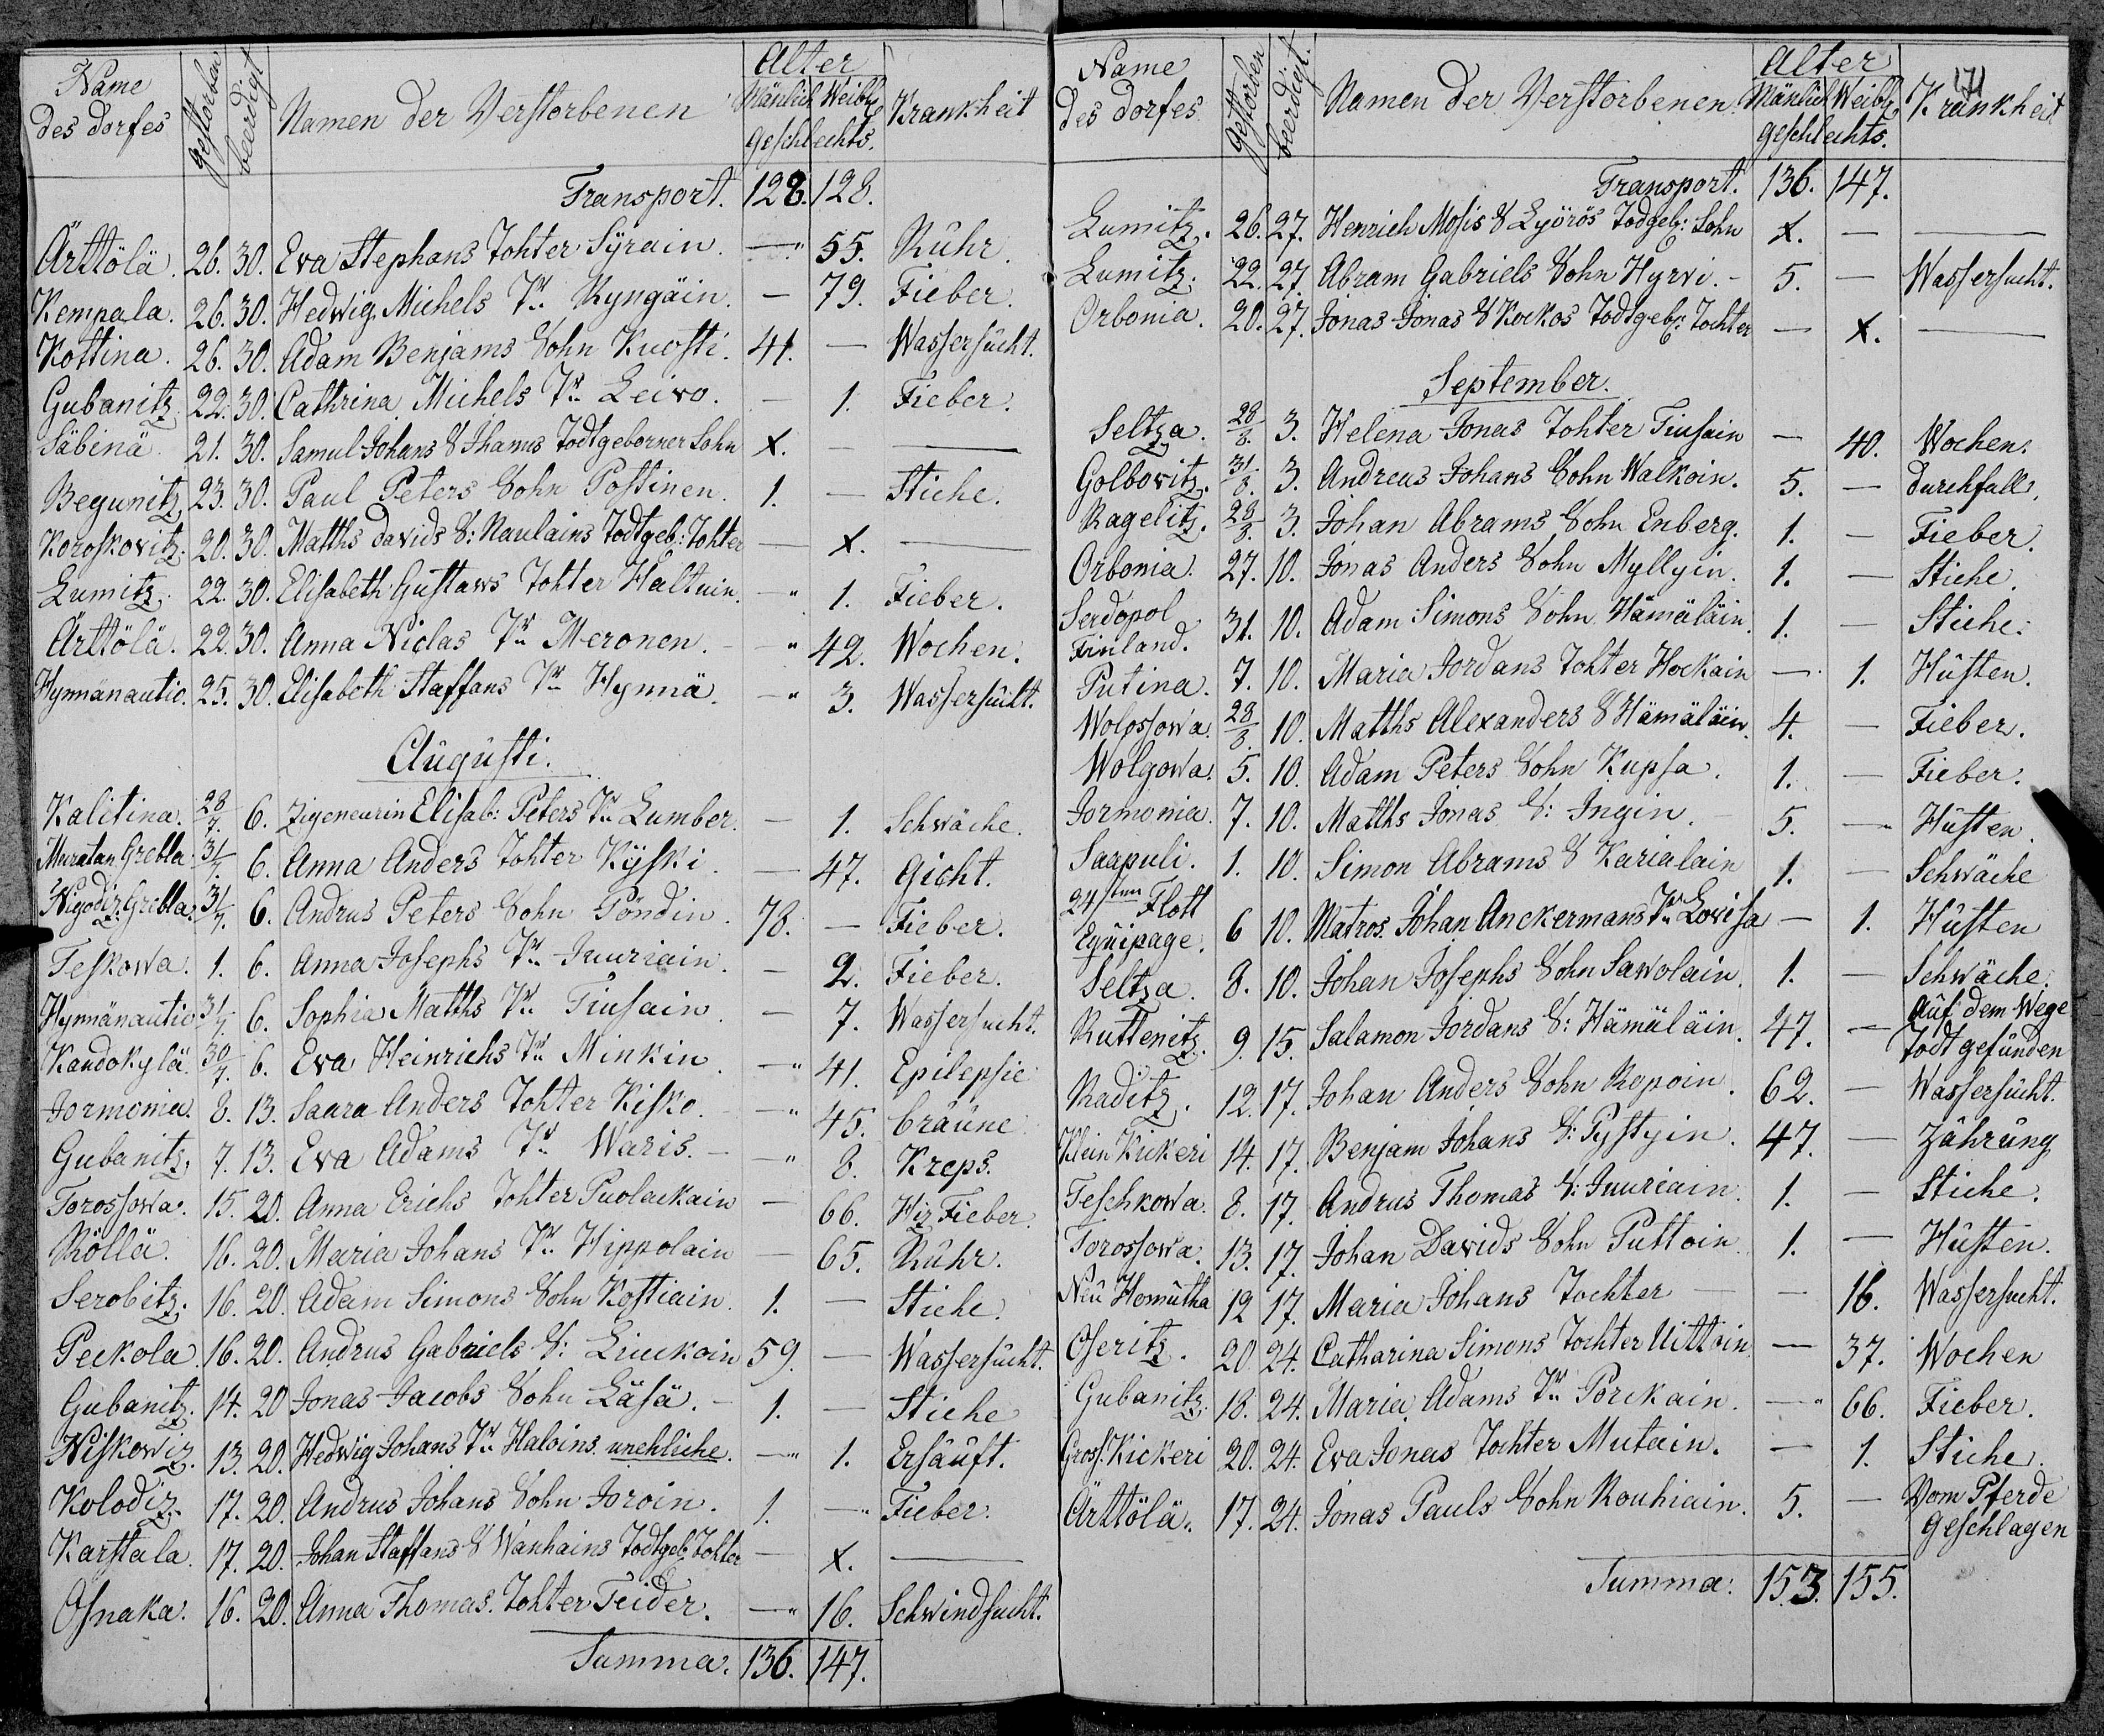 Name des dorfes gestorben beerdigt Namen der Verstorbenen Alter Mänlich Weibl. Geschlechts. Krankheit
Transport. 128. 128.
Ärttölä. 26. 30. Eva Stephans Tohter Syrain. — 55. Ruhr.
Kempala. 26. 30. Hedwig Michels Tr. Kyngäin. — 79. Fieber.
Kottina. 26. 30. Adam Benjams Sohn Kuosti. 41. — Wassersucht.
Gubanitz. 22. 30. Cathrina Michels Tr. Leivo. — 1. Fieber.
Säbinä. 21. 30. Samul Johans S Ihanus Todtgeborner Sohn X. — —
Begunitz. 23. 30. Paul Peters Sohn Postinen. 1. — Stiche.
Koroskovitz. 20. 30. Matths davids S: Naulains Todtgeb: Tohter — X. —
Lumitz. 22. 30. Elisabeth Gustavs Tohter Haltuin. — 1. Fieber.
Ärttölä. 22. 30. Anna Niclas Tr. Meronen. — 42. Wochen.
Hynnänautio. 25. 30. Elisabeth Staffans Tr. Hynnä. — 3. Wassersucht.
Augusti.
Kalitina. 28/7. 6. Zigeneurin Elisab: Peters Tr. Lumber. — 1. Schwäche.
Muratan Grebla 31/7. 6. Anna Anders Tohter Kyski. — 47. Gicht.
Nigodiz. Grebla. 31/7. 6. Andrus Peters Sohn Pöndin. 78. — Fieber.
Teskowa. 1. 6. Anna Josephs Tr. Juuriain. — 2. Fieber.
Hynnänautio 31/7 6. Sophia Matths Tr. Tiusain. — 7. Wassersucht.
Kandokylä. 30/7. 6. Eva Heinrichs Tr. Minkin. — 41. Epilepsie
Jormonia. 8. 13. Saara Anders Tohter Kisko. — 45. bräune
Gubanitz. 7. 13. Eva Adams Tr. Waris. — 8. Kreps.
Torossowa. 15. 20. Anna Erichs Tohter Puolackain — 66. Hiz Fieber.
Röllä. 16. 20. Maria Johans Tr. Hippolain — 65. Ruhr.
Serobitz. 16. 20. Adam Simons Sohn Kostiain. 1. — Stiche.
Peckola. 16. 20. Andrus Gabriels S: Liuckoin 59. — Wassersucht.
Gubanitz. 14. 20 Jonas Jacobs Sohn Läsä. 1. — Stiche
Niskowiz. 13. 20. Hedwig Johans Tr. Haloins. unehliche. — 1. Ersäuft.
Kolodiz. 17. 20. Andrus Johans Sohn Joroin. 1. — Fieber.
Karstala. 17. 20. Johan Staffans S Wanhains Todtgeb. Tohter — X. —
Osnaka. 16. 20. Anna Thomas. Tohter Teider. — 16. Schwindsucht.
Summa. 136. 147.
171
Name des dorfes. Gestorben beerdigt. Namen der Verstorbenen. Alter Mänlich Weibl. geschlechts. Krankheit
Transport. 136. 147.
Lumitz. 26. 27. Henrich Mosis S Lyörös Todgeb: Sohn X. — —
Lumitz. 22. 27. Abram Gabriels Sohn Hyrvi. 5. — Wassersucht.
Orbonia. 20. 27. Jonas Jonas S Kockos Todtgeb: Tochter — X. —
September.
Seltza. 28/8. 3. Helena Jonas Tohter Tiusain — 40. Wochen.
Golbovitz. 31/8. 3. Andreus Johans Sohn Walkoin. 5. — durchfall.
Ragelitz. 28/8. 3. Johan Abrams Sohn Enberg. 1. — Fieber.
Orbonia. 27. 10. Jonas Anders Sohn Myllyin. 1. — Stiche.
Serdopol
Finland. 31. 10. Adam Simons Sohn Hämäläin. 1. — Stiche.
Putina. 7. 10. Maria Jordans Tohter Hockain — 1. Husten.
Wolossowa. 28/8. 10. Matths Alexanders S Hämäläin. 4. — Fieber.
Wolgowa. 5. 10. Adam Peters Sohn Kupsa. 1. — Fieber.
Jormonia. 7. 10. Matths Jonas S: Ingin. 5. — Husten.
Saapuli. 1. 10. Simon Abrams S Karialain 1. — Schwäche
24sten Flott
Equipage. 6 10. Matros. Johan Anckermans Tr. Lovisa — 1. Husten
Seltza. 8. 10. Johan Josephs Sohn Sawolain. 1. — Schwäche.
Ruttenitz. 9. 15. Salamon Jordans S: Hämäläin. 47. — Auf dem Wege
Todt gefunden
Raditz. 12. 17. Johan Anders Sohn Repoin. 62. — Wassersucht.
Klein Kickeri 14. 17. Benjam Johans S: Pystyin. 47. — Zährung
Teschkowa. 8. 17. Andrus Thomas S: Juuriain. 1. — Stiche.
Torossowa. 13. 17. Johan Davids Sohn Puttoin 1. — Husten.
Neu Homutha 12 17. Maria Johans Tochter — — 16. Wassersucht.
Oseritz. 20. 24. Catharina Simons Tochter Uittoin — 37. Wochen
Gubanitz. 18. 24. Maria Adams Tr. Porckain. — 66. Fieber.
Gross. Kickeri 20. 24. Eva Jonas Tochter Mutain. — 1. Stiche.
Ärttölä. 17. 24. Jonas Pauls Sohn Rouhiain. 5. — Vom Pferde
Geschlagen
Summa: 153. 155.